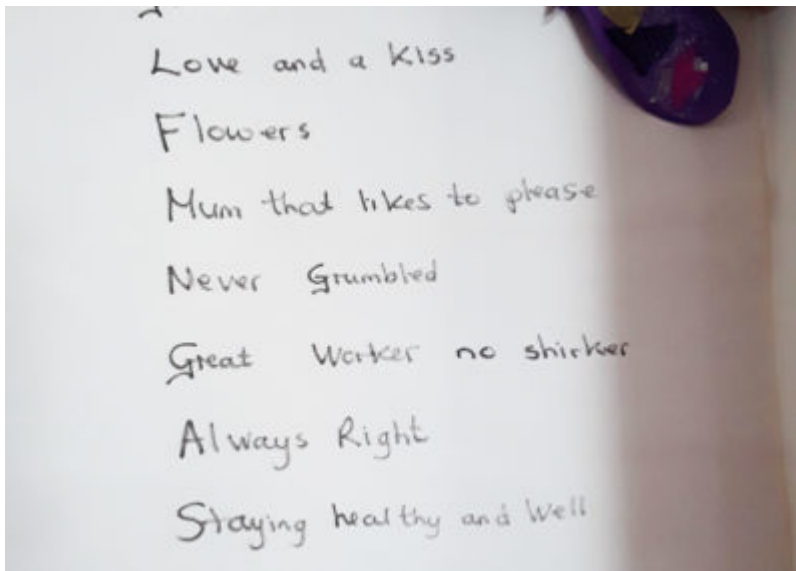 Love and a kiss
Flowers
Mum that likes to please
Never Grumbled
Great Worker no shirker
Always Right
Staying healthy and Well